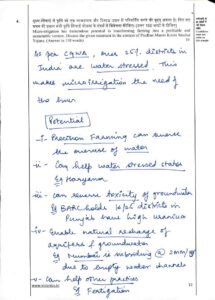 4.
सूक्ष्म सिंचाई में कृषि को एक लाभकारी और टिकाऊ उद्यम में परिवर्तित करने की
Micro-irrigation has tremendous potential in transforming farming into a profitable and
sustainable venture. Discuss the given statement in the context of Pradhan Mantri Krishi Sinchai
Yojana. (Answer in 150 words) 10
As per CGWA, over 25% districts in
India are water stressed. This
makes microirrigation the need of
the hour
Potential
i- Precision Farming can reverse
the overuse of water
ii- Can help water stressed states
Eg Haryana
iii- can reverse toxicity of groundwater
Eg BARC holds 16/25 districts in
Punjab have high uranium
iv- Enable natural recharge of
aquifers & groundwater
Eg Mumbai is subsiding @ 2mm/yr
due to empty water channels
v- Can help other practices
Eg Fertigation